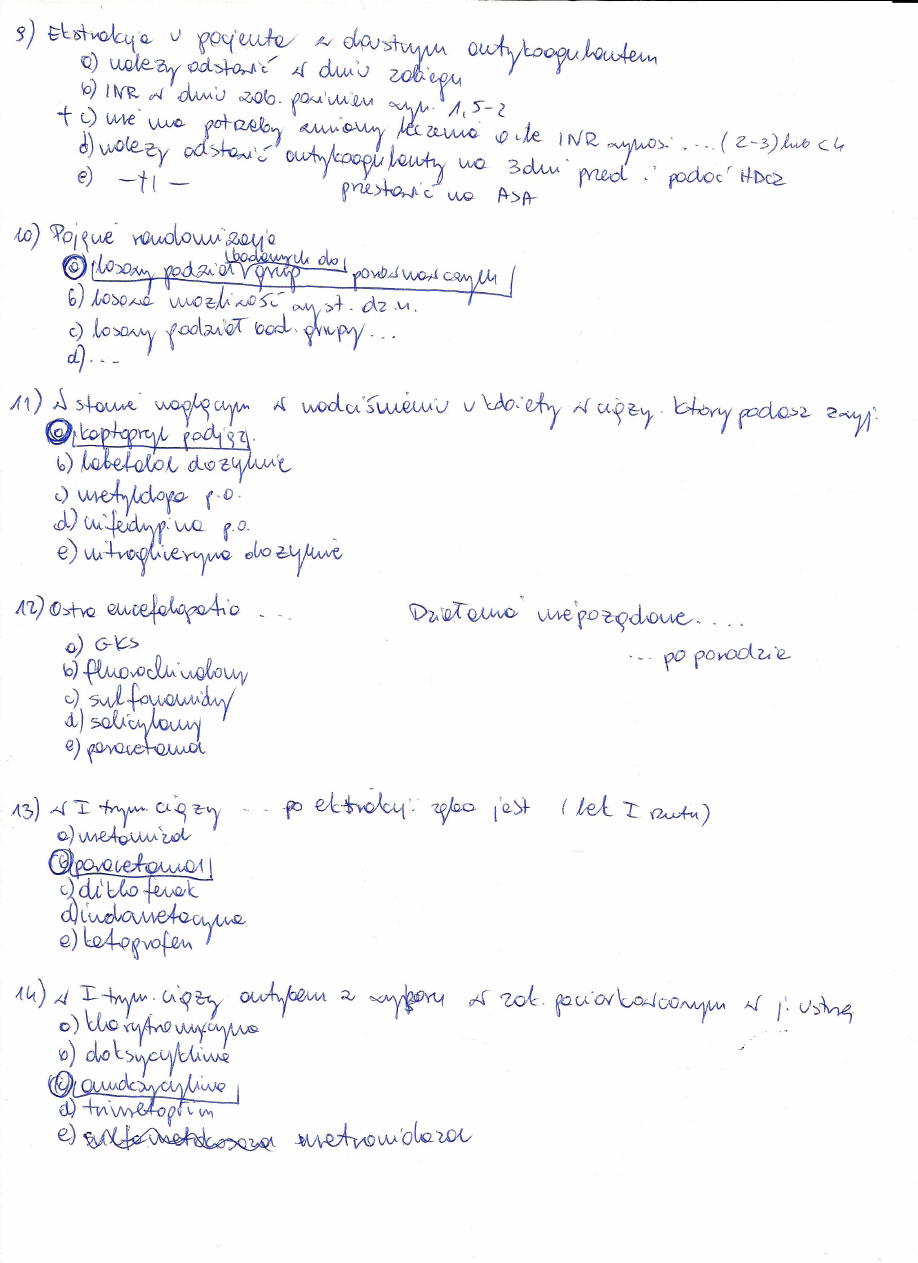 9) Ekstrakcja u pacjenta z doustnym antykoagulantem
a) należy odstawić w dniu zabiegu
b) INR w dniu zab. powinien wyn. 1,5-2
+ c) nie ma potrzeby zmiany leczenia o ile INR wynosi .... (2-3) lub < 4
d) należy odstawić antykoagulanty na 3 dni przed i podać HDCz
e) -+| - przestawić na ASA
10) Pojęcie randomizacja
a) losowy podział badanych do grup porównawczych
b) losowa możliwość wyst. dz. n.
c) losowy podział bad. grupy ...
d) ...
11) W stanie naglącym w nadciśnieniu u kobiety w ciąży. który podasz
a) kaptopryl podjęz.
b) labetalol dożylnie
c) metyldopa p.o.
d) nifedypina p.o.
e) nitrogliceryna dożylnie
12) Ostra encefalopatia ... Działania niepożądane ....
... po porodzie
a) GKS
b) fluorochinolony
c) sulfonamidy
d) salicylany
e) paracetamol
13) W I trym. ciąży ... po ekstrakcji zęba jest (lek I rzutu)
a) metamizol
b) paracetamol
c) diklofenak
d) indometacyna
e) ketoprofen
14) W I trym. ciąży antybem z wyboru w zak. paciorkowcowym w j. ustnej
a) klarytromycyna
b) doksycyklina
c) amoksycylina
d) trimetoprim
e) metronidazol